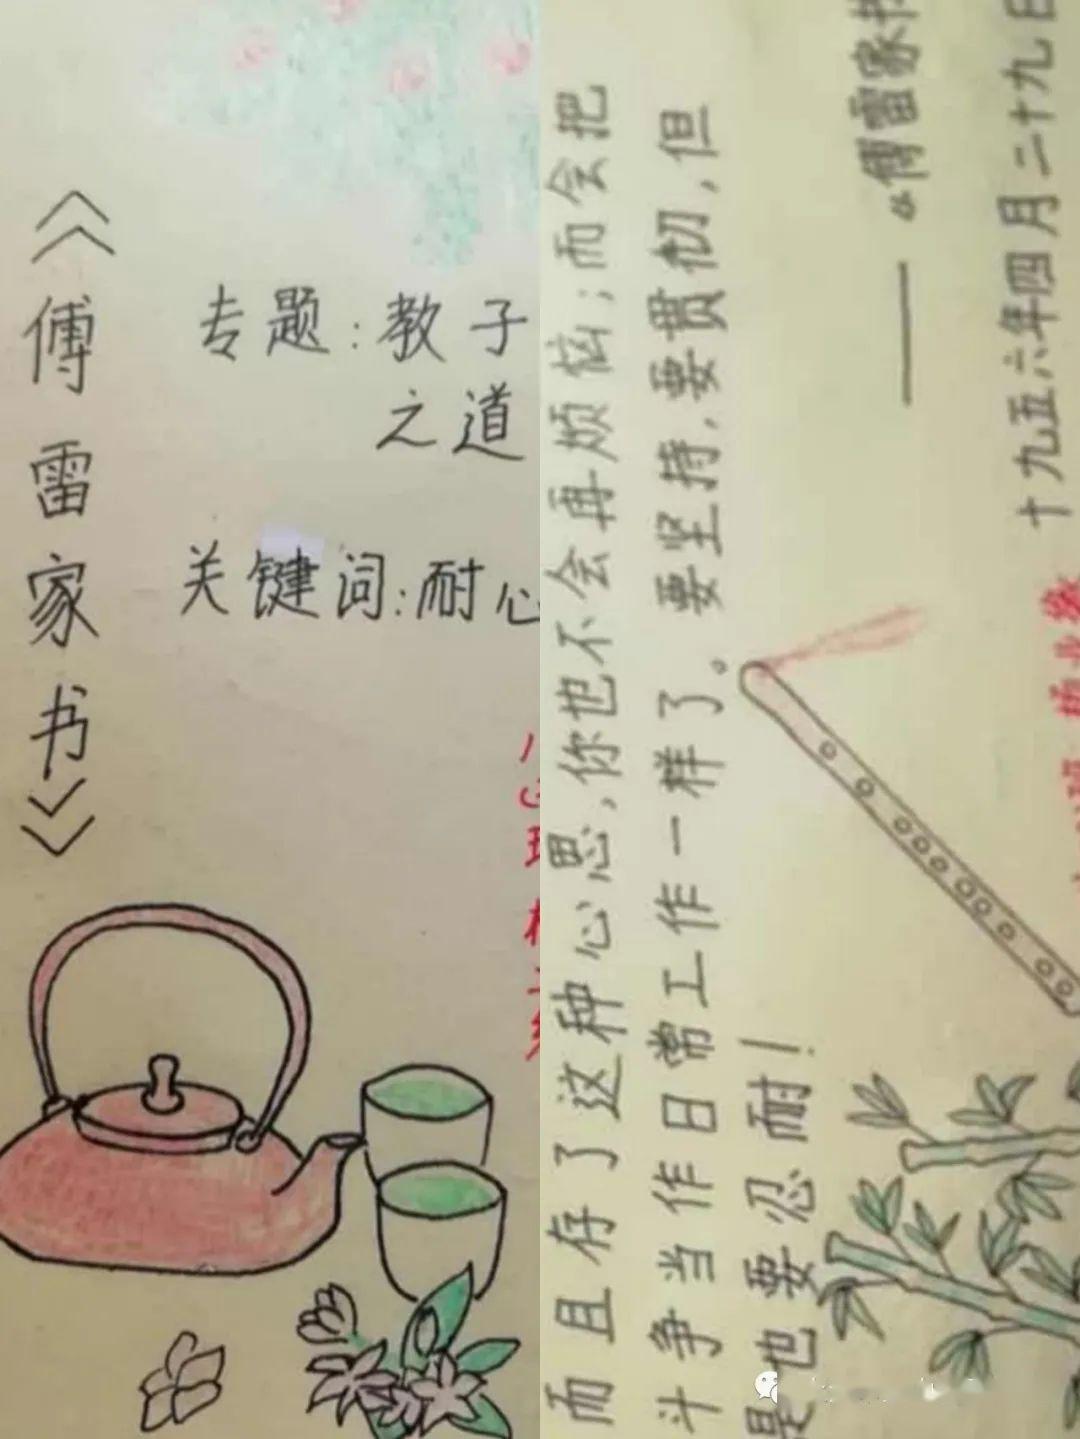 《傅雷家书》
专题:教子
之道
关键词:耐心
而且存了这种心思,你也不会再烦恼;而会把
斗争当作日常工作一样了。要坚持,要贯彻,但
是也要忍耐!
——《傅雷家书
十九五六年四月二十九日